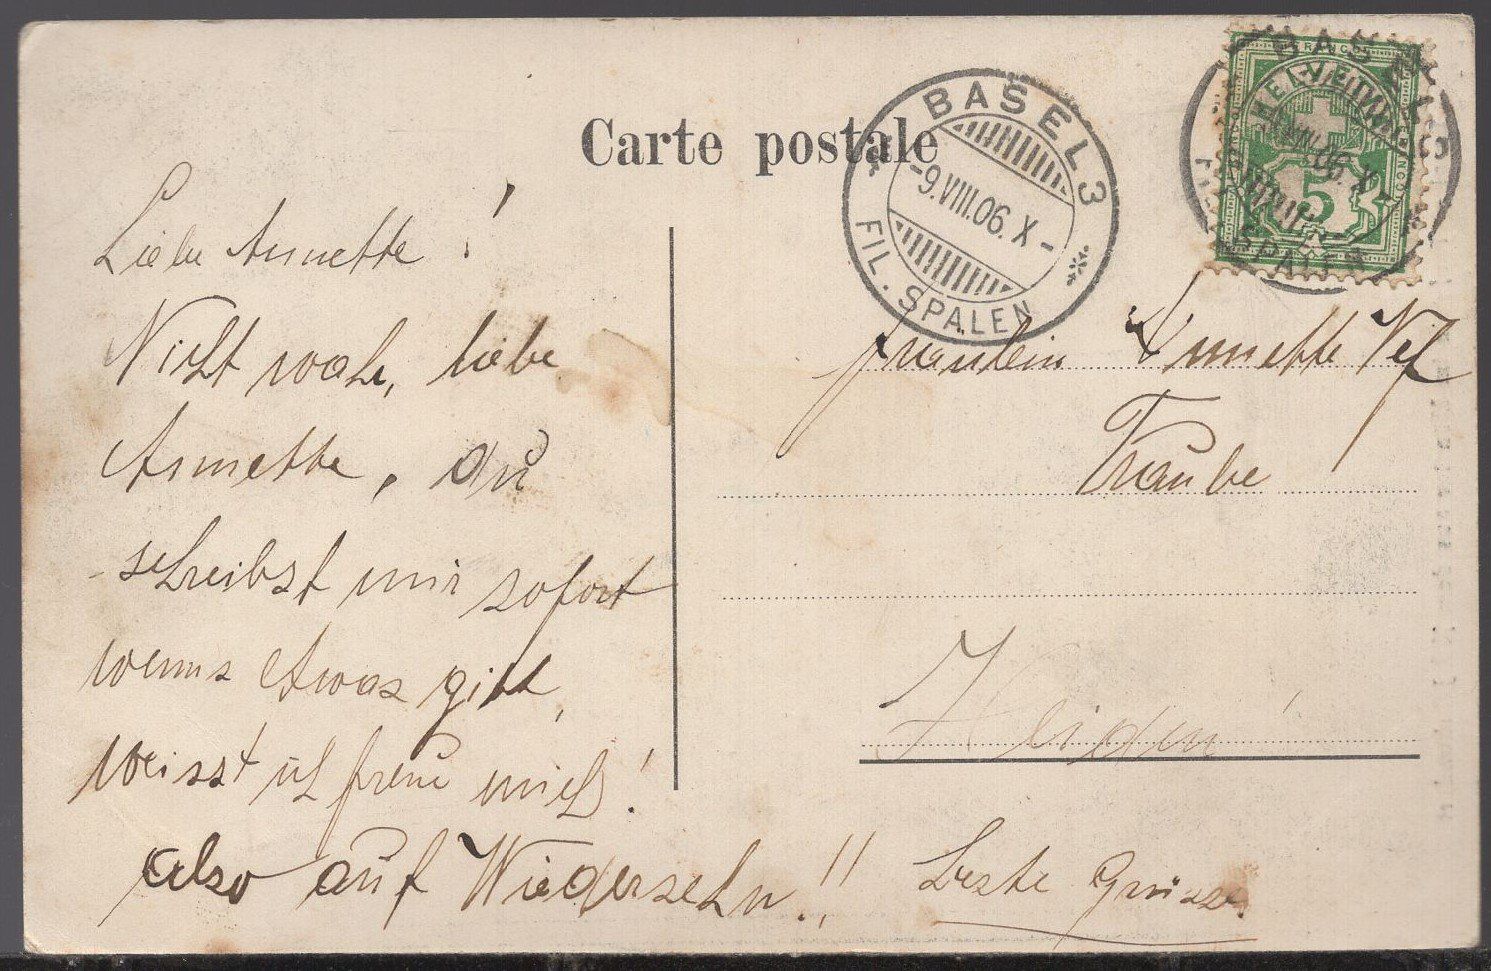 Carte postale
BASEL 3
-9.VIII.06.X-
FIL. SPALEN
BASEL 3
VIII.06.X-
FIL. SPALEN
FRANCO
HELVETIA
5
Liebe Annette!
Nicht wahr, liebe
Annette, du
schreibst mir sofort
wenns etwas gibt,
weisst ich freue mich!
also auf Wiedersehn!!
Beste Grüsse.
Fräulein Annette
Traube
Heiden